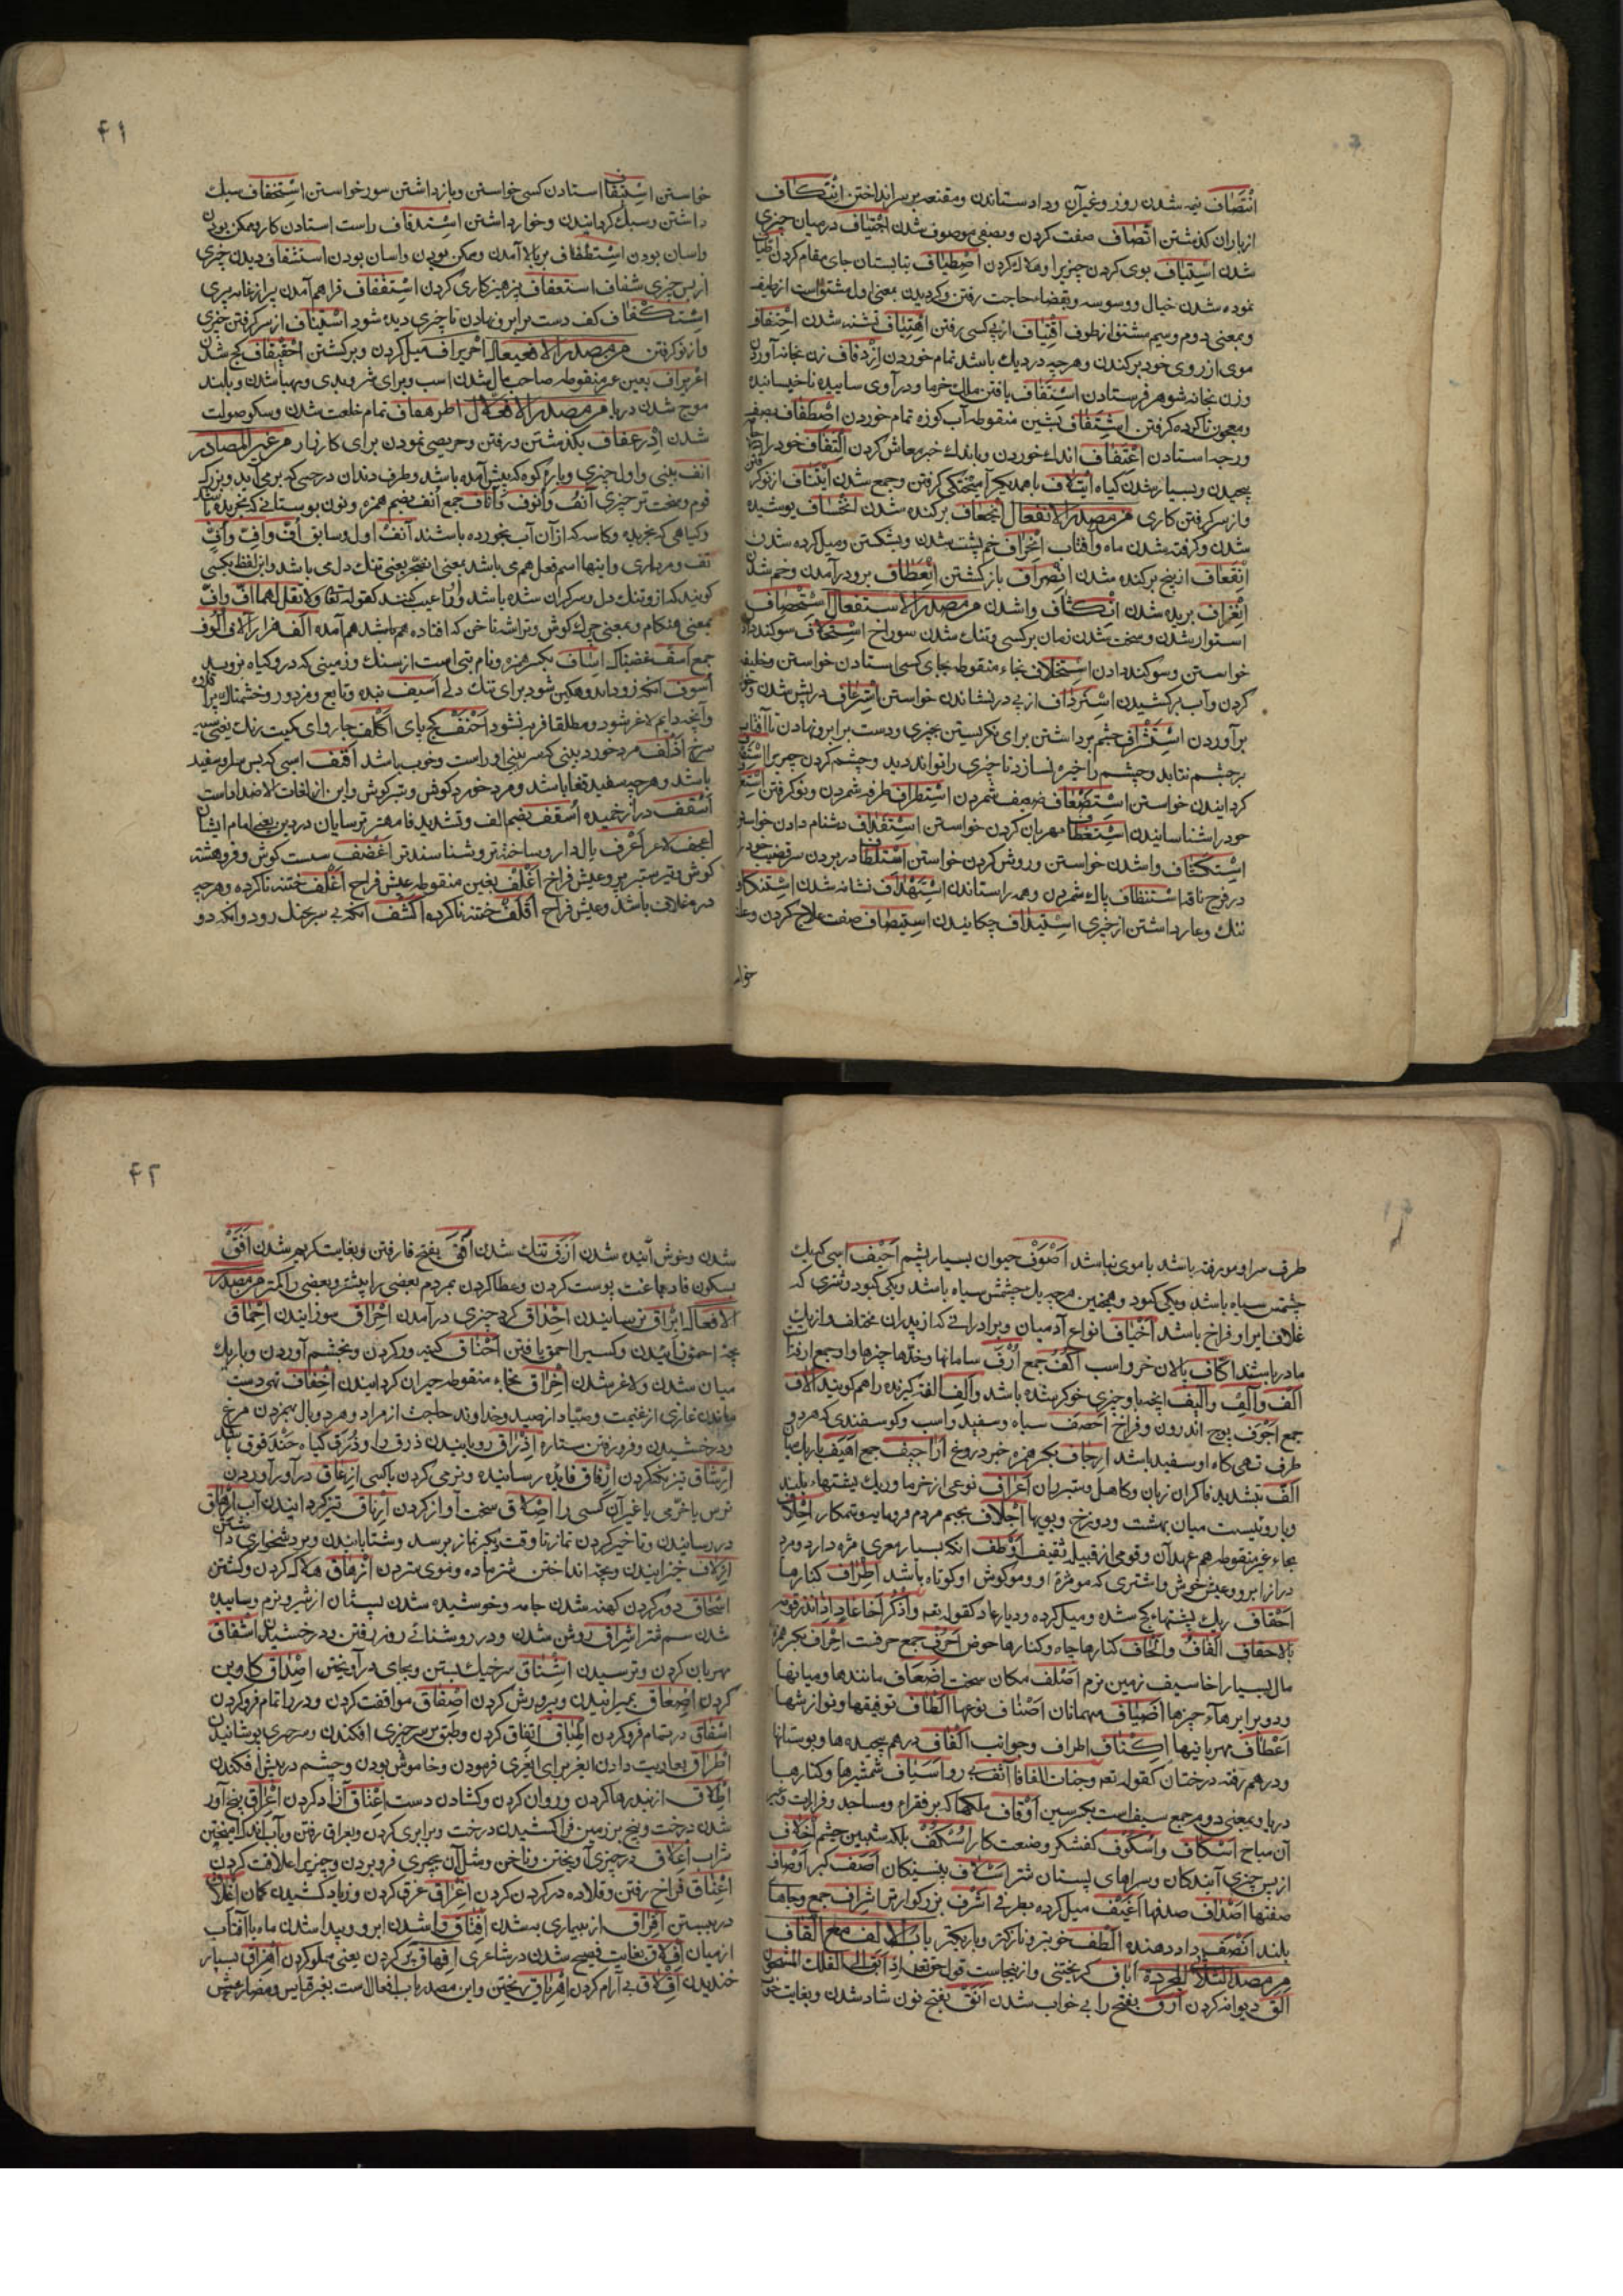 انتصاف نیمه شدن روز و غیر آن و داد ستاندن و مقنعه بر سر انداختن انتکاف
از باران کذشتن اتصاف صفت کردن و بصفتی موصوف شدن اجتیاف در میان چیزی
شدن استیاف بوی کردن چیزیرا و هلاک کردن اصطیاف بتابستان جای مقام کردن
نموده شدن خیال و وسوسه و بقضاء حاجت رفتن و کردیدن بمعنی اول مشتق است از طیف
و بمعنی دوم و سیم مشتق از طوف اقتیاف از پی کسی رفتن اهتیاف تشنه شدن احتفاف
موی از روی خود برکندن و هرچه در دیك باشد تمام خوردن ازدفاف زن بخانه آوردن
و زن بخانه شوهر فرستادن
و رجه استادن اغتفاف اندك خوردن و باندك خیر معاش کردن التفاف خود را
پیچیدن و بسیار شدن کیاه ایتلاف با همدیکر آمیختکی کرفتن و جمع شدن ایتناف از نو کر
و از سر کرفتن کاری من مصدر الانفعال انجعاف برکنده شدن انخساف پوشیده
شدن و کرفته شدن ماه و آفتاب انحراف خم پشت شدن و بشکتن و میل کرده شدن
انقعاف از بیخ برکنده شدن انصراف باز کشتن انعطاف برو در آمدن و خم شدن
انغراف بریده شدن انکشاف وا شدن من مصدر الاستفعال استحصاف
استوار شدن و سخت شدن زمان بر کسی و تنك شدن سوراخ استحلاف سوکند دا
خواستن و سوکند دادن استخلاف بخاء منقوطه بجای کسی استادن خواستن و خلیفه
کردن و آب برکشیدن استرداف از پی در نشاندن خواستن استرعاف در پیش شدن و خو
برآوردن استشراف چشم برداشتن برای نکریستن بچیزی و دست بر ابرو نهادن تا آفتاب
بر چشم نتابد و چشم را خیره نسازد تا چیزی را تواند دید و چشم کردن چیزیرا
کردانیدن خواستن استضعاف ضعیف شمردن استطراف طرفه شمردن و نو کرفتن
خود را شناسانیدن استعطاف مهربان کردن خواستن استقذاف دشنام دادن خواستن
استکشاف وا شدن خواستن و روشن کردن خواستن
در فرج ناقه استنظاف پاك شمردن و همه را ستاندن استهداف نشانه شدن استنکاف
ننك و عار داشتن از چیزی استیداف چکانیدن استیصاف صفت علاج کردن
خوا
۴۱
خواستن استیقاف استادن کسی خواستن و باز داشتن سور خواستن استخفاف سبك
داشتن و سبك کردانیدن و خوار داشتن استدفاف راست استادن کار و ممکن بودن
و آسان بودن استطفاف بر بالا آمدن و ممکن بودن و آسان بودن استشفاف دیدن چیزی
از پس چیزی شفاف استعفاف پرهیزکاری کردن استقفاف فراهم آمدن پیر از غایت پیری
استکفاف کف دست بر ابرو نهادن تا چیزی دیده شود استیناف از سر کرفتن چیزی
و از نو کرفتن من مصدر الافعیعال احریراف میل کردن و برکشتن احقیقاف کج شدن
موج شدن دریا من مصدر الافعلال اطرهفاف تمام خلقت شدن و سکو صولت
شدن اذرعفاف بکذشتن و رفتن و حریصی نمودن برای کارزار من غیر المصادر
انف بینی و اول چیزی و پاره کوه که پیش آمده باشد و طرف دندان در حسی که بر می آید و بزرك
قوم و سخت تر چیزی آنف و انوف و آناف جمع انف بضم همزه و نون بوستانی که نچریده باشند
و کیاهی که نچریده و کاسه که از آن آب نخورده باشند آنف اول و سابق
کویند که از و تنك دل و سرکران شده باشد و او را عیب کنند کقوله تعالی ولا تقل لهما اف
بمعنی هنکام و بمعنی چرك کوش و تراشه ناخن که افتاده هم باشد هم آمده الف هزار آلاف الوف
جمع اسف غضبناك اساف بکسر همزه و نام بتی است از سنك و زمینی که در و کیاه نروید
اسوف آنکه زود اندوهکین شود برای تنك دلی اسیف بنده و تابع و مزدور و خشمناك
و آنچه دایم لاغر شود و مطلقا فربه نشود احنف کج پای اکلف چاروای کمیت رنك
سرخ اذلف مرد خورد بینی که سر بینی او راست و خوب باشد اقنف اسبی که پس سر او سفید
باشد و هرچه سفید قفا باشد و مرد خورد کوش و ستبر کوش و این از لغات الاضداد است
اسقف دراز خمیده اسقف بضم الف و تشدید فا مهتر ترسایان در دین یعنی امام ایشان
اعجف لاغر اعرف یال دار و ساخته تر و شناسنده تر اغضف سست کوش و فروهشته
کوش و تیر ستبر پر و عیش فراخ اغلف بغین منقوطه عیش فراخ اغلف ختنه ناکرده و هرچه
در و غلاف باشد و عیش فراخ اقلف ختنه ناکرده اکشف آنکه بی سپر بجنك رود و آنکه دو
طرف سر او مو رفته باشد یا موی نباشد اصوف حیوان بسیار پشم اخیف اسبی که یك
چشمش سیاه باشد و یکی کبود و همچنین هرچه یك چشمش سیاه باشد و یکی کبود و شتری که
غلاف ایر او فراخ باشد اخیاف انواع آدمیان و برادرانی که از پدران مختلف و از یك
مادر باشند اکاف پالان خر و اسب اکف جمع ارف سامانها و حدها چیزها و او جمع ارفة
الف و آلف و الیف آنچه با و چیزی خو کرده شده باشد و آلف الفت کیرنده را هم کویند آلاف
جمع اجوف پوچ اندرون و فراخ اخصف سیاه و سفید و اسب و کوسفندی که هر دو
طرف تهی کاه او سفید باشد ارجاف بکسر همزه خبر دروغ اراجیف جمع اهیف باریك میان
الف بتشدید فا کران زبان و کاهل و ستبر ران اعراف نوعی از خرما و ریك پشتهاء بلند
و باروئیست میان بهشت و دوزخ و بویها اجلاف بجیم مردم فرومایه و ستمکار احلاف
بحاء غیر منقوطه هم عهدان و قومی از قبیله ثقیف اوطف آنکه بسیار موی مژه دارد و مرد
دراز ابرو و عیش خوش و اشتری که مو مژه او و مو کوش او کوتاه باشد اطراف کنارها
احقاف ریك پشتهاء کج شده و میل کرده و دیار عاد کقوله تعه واذکر اخا عاد اذ انذر قومه
بالاحقاف الجاف و الجاف کنارها چاه و کنارها حوض احرف جمع حرفت احراف بکسر همزه
مال بسیار اخاسیف زمین نرم اصلف مکان سخت اضعاف مانندها و میانها
و دو برابرهاء چیزها اضیاف مهمانان اصناف نوعها الطاف توفیقها و نوازشها
اعطاف مهربانیها اکناف اطراف و جوانب الفاف درهم پیچیده ها و بوستانها
و درهم رفته درختان کقوله تعه وجنات الفافا آنفه رو اسیاف شمشیرها و کنارها
دریا و بمعنی دوم جمع سیف است بکسر سین اوقاف ملکها که بر فقراء و مساجد و قرائت و غیر
آن مباح اسکاف و اسکوف کفشکر و صنعت کار استکف بلکه شبین چشم اخلاف
از پس چیزی آیندکان و سرهای پستان شتر اسلاف پیشینکان اصف کبر اوصاف
صفتها اصداف صدفها اغیف میل کرده بطرفی اشرف بزرکوارتر اشراف جمع و جاها
بلند انصف داد دهنده الطف خوبتر و نازکتر و باریکتر باب الالف مع القاف
من مصدر الثلاثی المجرد اباق کریختن و از اینجاست قول حق تعالی اذ ابق الی الفلك المشحون
الق دیوانه کردن ارق بفتح را بی خواب شدن انق بفتح نون شاد شدن و بغایت خوب
۴۲
شدن و خوش آینده شدن ازق تنك شدن افق بفتح فا رفتن و بغایت کریم شدن افق
بسکون فا دباغت پوست کردن و عطا کردن بمردم بعضی را بیشتر و بعضی را کمتر من مصدر
الافعال ابراق ترسانیدن احداق کرد چیزی در آمدن احراق سوزانیدن احماق
بچه احمق زاییدن و کسیرا احمق یافتن احناق کینه ور کردن و بخشم آوردن و باریك
میان شدن و لاغر شدن اخراق بخاء منقوطه حیران کردانیدن اخفاق تهی دست
ماندن غازی از غنیمت و صیاد از صید و خداوند حاجت از مراد و هر دو بال بهم زدن مرغ
و درخشیدن و فرو رفتن ستاره اذراق رویانیدن ذرق را و ذرق کیاه حندقوق باشد
ارشاق تیز نکه کردن ارفاق فایده رسانیده و نرمی کردن با کسی ازعاق در آوردن
ترس یا خرمی یا غیر آن کسی را اصلاق سخت آواز کردن ارناق تیره کردانیدن آب ارهاق
در رسانیدن و تاخیر کردن نماز تا وقت دیکر نماز برسد و شتابانیدن و بر دشخواری داشتن
ازلاق خیزانیدن و بچه انداختن شتر ماده و موی ستردن ازهاق هلاك کردن و کشتن
اسحاق دور کردن کهنه شدن جامه و خوشیده شدن پستان از شیر و نرم و ساییده
شدن سم شتر اشراق روشن شدن و در روشنائی روز رفتن و درخشیدن اشفاق
مهربان کردن و ترسیدن اشناق سر خیك بستن و بجای در آویختن اصداق کاوین
کردن اصعاق بمیرانیدن و بیهوش کردن اصفاق موافقت کردن و در را تمام فرو کردن
اسفاق در بتمام فرو کردن اطباق اتفاق کردن و طبق بر سر چیزی افکندن و سر چیزی پوشانیدن
اطراق بعاریت دادن ایغر برای ایغری فرمودن و خاموش بودن و چشم در پیش افکندن
اطلاق از بند رها کردن و روان کردن و کشادن دست اعتاق آزاد کردن اعراق بیخ آور
شدن درخت و بیخ بر زمین فرا کشیدن درخت و برابری کردن و بعراق رفتن و آب اندك آمیختن
شراب اعلاق در چیزی آویختن و ناخن و مثل آن بچیزی فرو بردن و چیزیرا علاقت کردن
اعناق فراخ رفتن و قلاده در کردن کردن اغراق غرق کردن و زیاد کشیدن کمان اغلاق
در بستن افراق از بیماری به شدن افتاق وا شدن ابر و پیدا شدن ماه یا آفتاب
از میان افلاق بغایت فصیح شدن در شاعری افهاق پر کردن یعنی مملو کردن اهزاق بسیار
خندیدن اقلاق بی آرام کردن اهراق ریختن و این مصدر باب افعال است بغیر قیاس